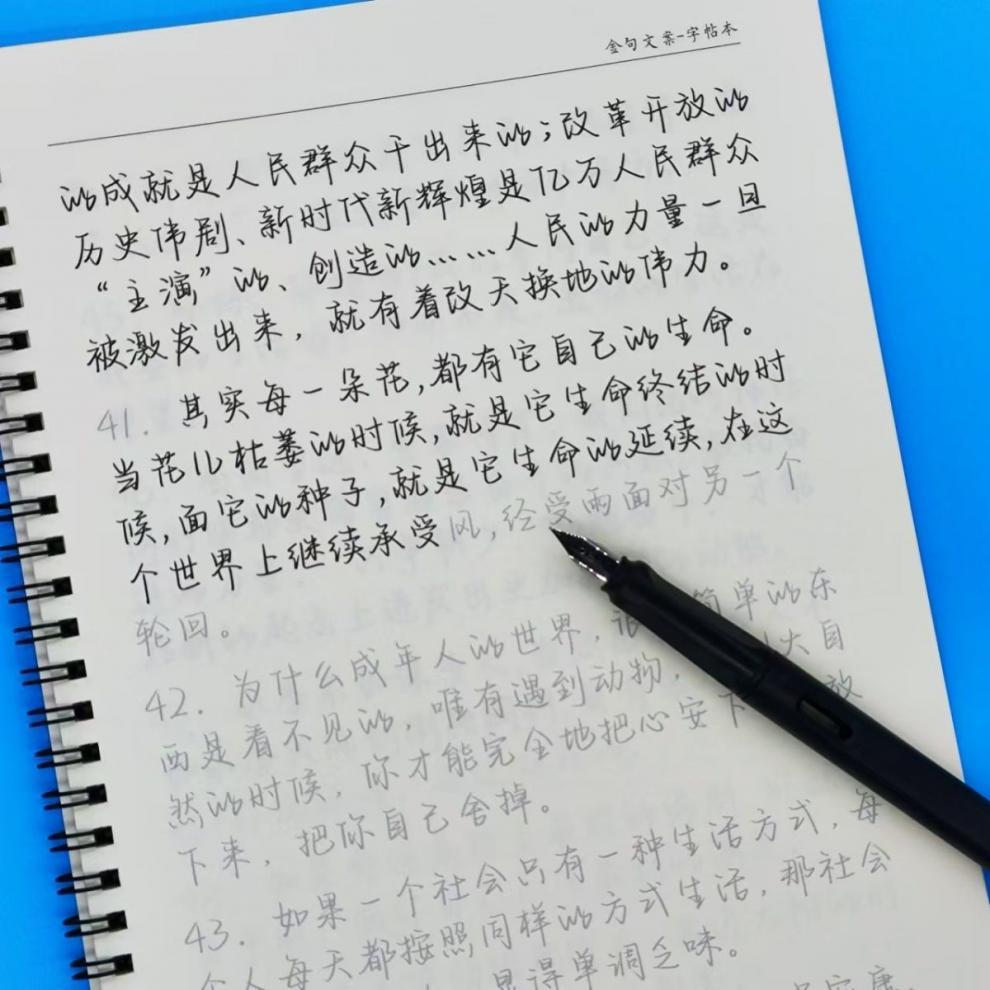 金句文案-字帖本
的成就是人民群众干出来的；改革开放的
历史伟剧、新时代新辉煌是亿万人民群众
“主演”的、创造的……人民的力量一旦
被激发出来，就有着改天换地的伟力。
41. 其实每一朵花，都有它自己的生命。
当花儿枯萎的时候，就是它生命终结的时
候，面它的种子，就是它生命的延续，在这
个世界上继续承受风，经受雨面对另一个
轮回。
42. 为什么成年人的世界，很 简单的东
西是看不见的，唯有遇到动物， 大自
然的时候，你才能完全地把心安下 放
下来，把你自己舍掉。
43. 如果一个社会只有一种生活方式，每
个人每天都按照同样的方式生活，那社会
显得单调乏味。